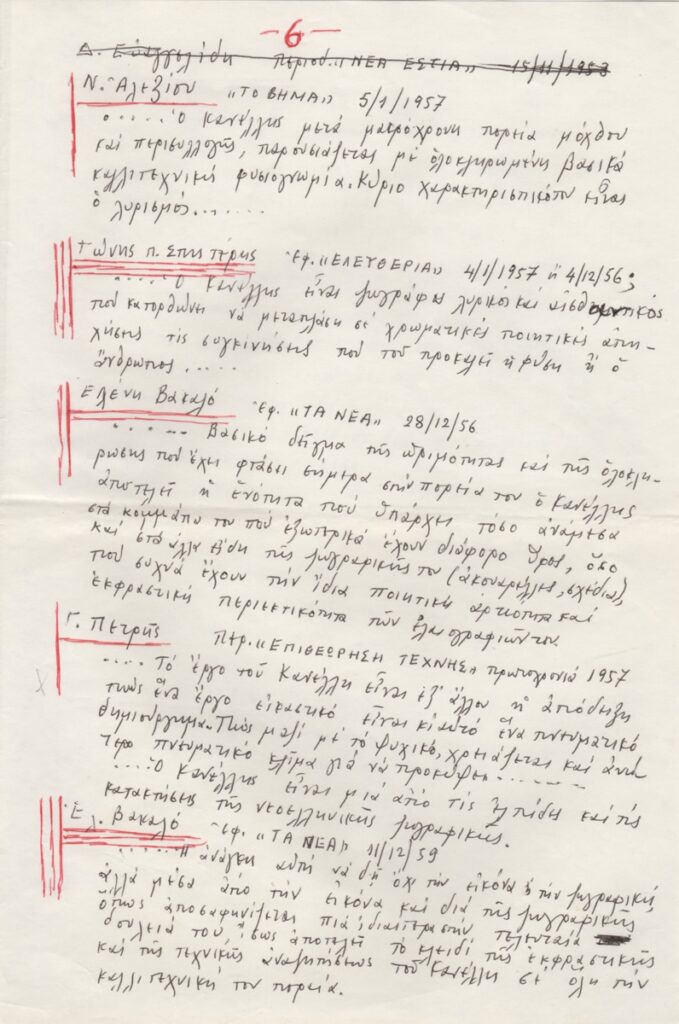 -6-
Δ. Εὐαγγελίδη Περιοδ. "ΝΕΑ ΕΣΤΙΑ" 15/11/1953
Ν. Ἀλεξίου "ΤΟ ΒΗΜΑ" 5/1/1957
..... Ὁ Κανέλλης μετά μακρόχρονη πορεία μόχθου
καί περισυλλογῆς, παρουσιάζεται μέ ὁλοκληρωμένη βασικά
καλλιτεχνική φυσιογνωμία. Κύριο χαρακτηριστικό του εἶναι
ὁ λυρισμός.......
Τώνης Π. Σπητέρης Ἐφ. "ΕΛΕΥΘΕΡΙΑ" 4/1/1957 ἤ 4/12/56;
..... Ὁ Κανέλλης εἶναι ζωγράφος λυρικός καί αἰσθαντικός
πού κατορθώνει νά μεταπλάση σέ χρωματικές ποιητικές ἀπη-
χήσεις τίς συγκινήσεις πού τοῦ προκαλεῖ ἡ φύση ἤ ὁ
ἄνθρωπος.....
Ἑλένη Βακαλό Ἐφ. "ΤΑ ΝΕΑ" 28/12/56
...... Βασικό δεῖγμα τῆς ὡριμότητας καί τῆς ὁλοκλη-
ρωσης πού ἔχει φτάσει σήμερα στήν πορεία του ὁ Κανέλλης
ἀποτελεῖ ἡ ἑνότητα πού ὑπάρχει τόσο ἀνάμεσα
στά κομμάτια του πού ἐξωτερικά ἔχουν διάφορο ὕφος, ὅσο
καί στά ἄλλα εἴδη τῆς ζωγραφικῆς του (ἀκουαρέλλες, σχέδια),
πού συχνά ἔχουν τήν ἴδια ποιητική ἀρτιότητα καί
ἐκφραστική περιεκτικότητα τῶν ἐλαιογραφιῶν του.
Γ. Πετρῆς Περ. "ΕΠΙΘΕΩΡΗΣΗ ΤΕΧΝΗΣ" πρωτοχρονιά 1957
.... Τό ἔργο τοῦ Κανέλλη εἶναι ἐξ' ἄλλου ἡ ἀπόδειξη
πώς ἕνα ἔργο εἰκαστικό εἶναι κι αὐτό ἕνα πνευματικό
δημιούργημα. Πώς μαζί μέ τό ψυχικό, χρειάζεται καί ἀνώ
τερο πνευματικό κλίμα γιά νά προκύψει.......
..... Ὁ Κανέλλης εἶναι μιά ἀπό τίς ἐλπίδες καί τίς
κατακτήσεις τῆς νεοελληνικῆς ζωγραφικῆς.
Ἑλ. Βακαλό Ἐφ. "ΤΑ ΝΕΑ" 11/12/59
...... Ἡ ἀνάγκη αὐτή νά δῆ ὄχι τήν εἰκόνα ἤ τήν ζωγραφική,
ἀλλά μέσα ἀπό τήν εἰκόνα καί διά τῆς ζωγραφικῆς
ὅπως ἀποσαφηνίζεται πιά ἰδιαίτερα στήν τελευταία
δουλειά του ἴσως ἀποτελεῖ τό κλειδί τῆς ἐκφραστικῆς
καί τῆς τεχνικῆς ἀναζητήσεως τοῦ Κανέλλη σέ ὅλη τήν
καλλιτεχνική του πορεία.